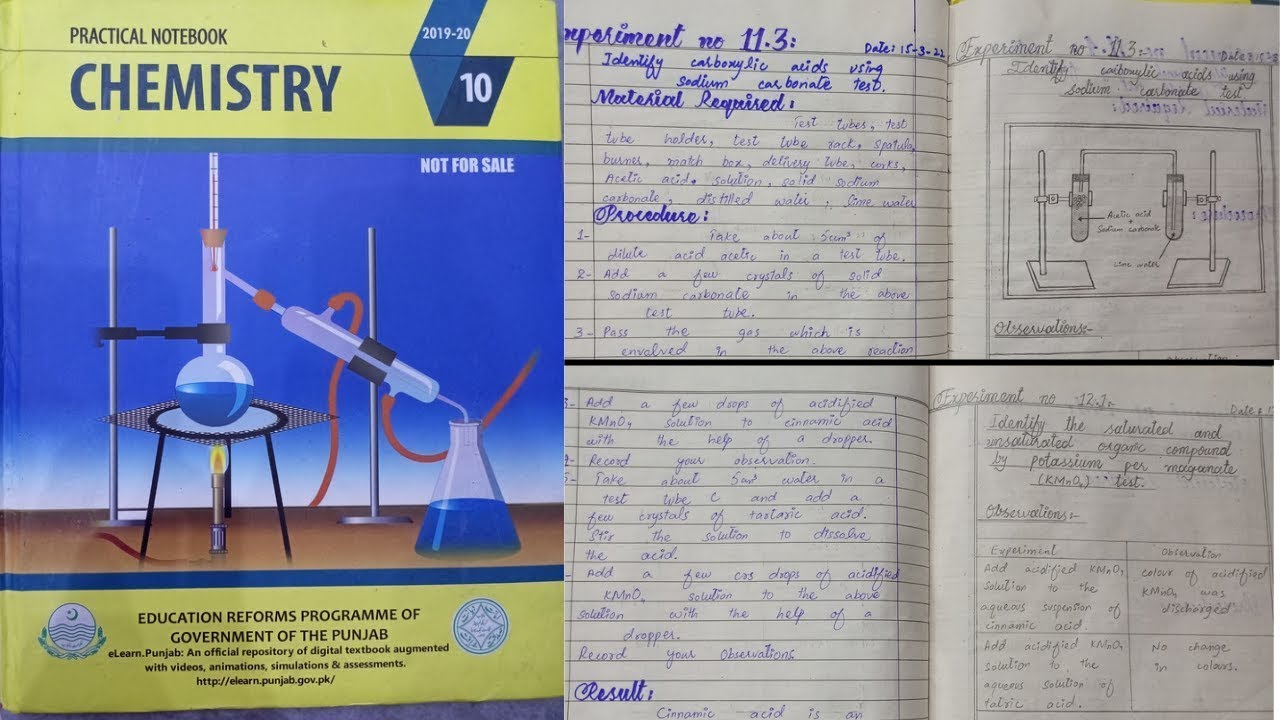 PRACTICAL NOTEBOOK
CHEMISTRY
2019-20
10
NOT FOR SALE
EDUCATION REFORMS PROGRAMME OF
GOVERNMENT OF THE PUNJAB
eLearn.Punjab: An official repository of digital textbook augmented
with videos, animations, simulations & assessments.
http://elearn.punjab.gov.pk/
xperiment no 11.3:
Date: 15-3-22
Identify carboxylic acids using
Sodium carbonate test.
Material Required:
Test tubes, test
tube holder, test tube rack, spatula,
burner, match box, delivery tube, corks,
Acetic acid, solution, solid sodium
carbonate, distilled water, lime water
Procedure:
1- Take about 5cm³ of
dilute acid acetic in a test tube.
2- Add a few crystals of solid
sodium carbonate in the above
test tube.
3- Pass the gas which is
envolved in the above reaction
Experiment no 11.3:-
Date
Identify carboxylic acids using
Sodium carbonate test
Acetic acid
+
Sodium carbonate
Lime water
Observations:-
3- Add a few drops of acidified
KMnO4 solution to cinnamic acid
with the help of a dropper.
Record your observation.
Take about 5cm³ water in a
test tube C and add a
few crystals of tartaric acid.
Stir the solution to dissolve
the acid.
- Add a few crs drops of acidified
KMnO4 solution to the above
solution with the help of a
dropper.
Record your Observations
Result:
Cinnamic acid is an
Experiment no 12.1:-
Date: 1
Identify the saturated and
unsaturated organic compound
by potassium per maganate
(KMnO4) test.
Observations:-
Experiment Observation
Add acidified KMnO4 colour of acidified
solution to the KMnO4 was
aqueous suspension of discharged
cinnamic acid.
Add acidified KMnO4 No change
solution to the in colours.
aqueous solution of
tatric acid.